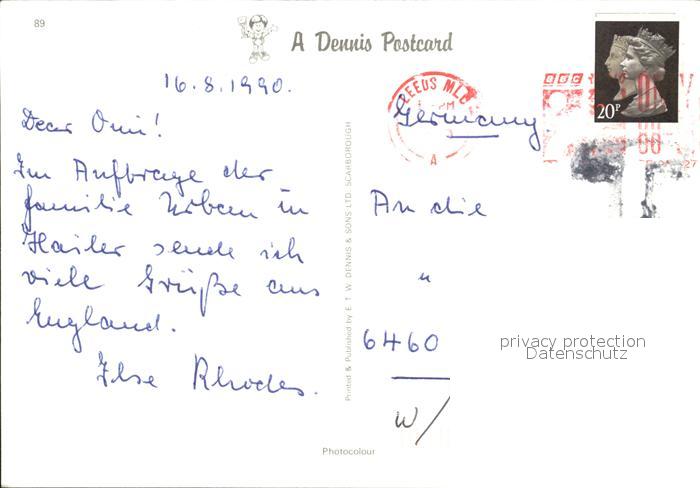 89
A Dennis Postcard
16.8.1990.
Dear Omi!
Im Auftrage der
Familie Urban in
Hailer sende ich
viele Grüße aus
England.
Ilse Rhodes.
Printed & Published by E. T. W. DENNIS & SONS LTD. SCARBOROUGH
Photocolour
LEEDS MLO
PM
A
20P
Germany
An die
"
6460
W/
privacy protection
Datenschutz